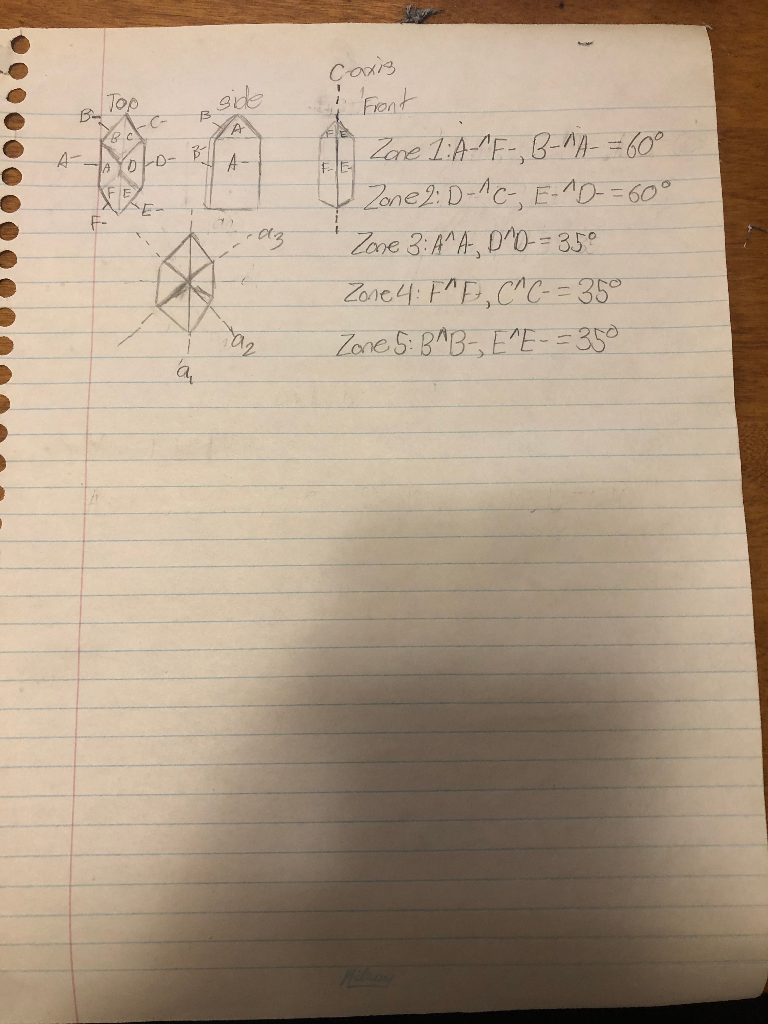 C-axis
Top
side
Front
B-
C-
B
A
B C
F E
A-
A
D
D-
B-
A-
F- E-
F E
F-
E-
Zone 1: A-^F-, B-^A- = 60°
Zone 2: D-^C-, E-^D- = 60°
Zone 3: A^A-, D^D- = 35°
Zone 4: F^F-, C^C- = 35°
Zone 5: B^B-, E^E- = 35°
a3
a2
a1